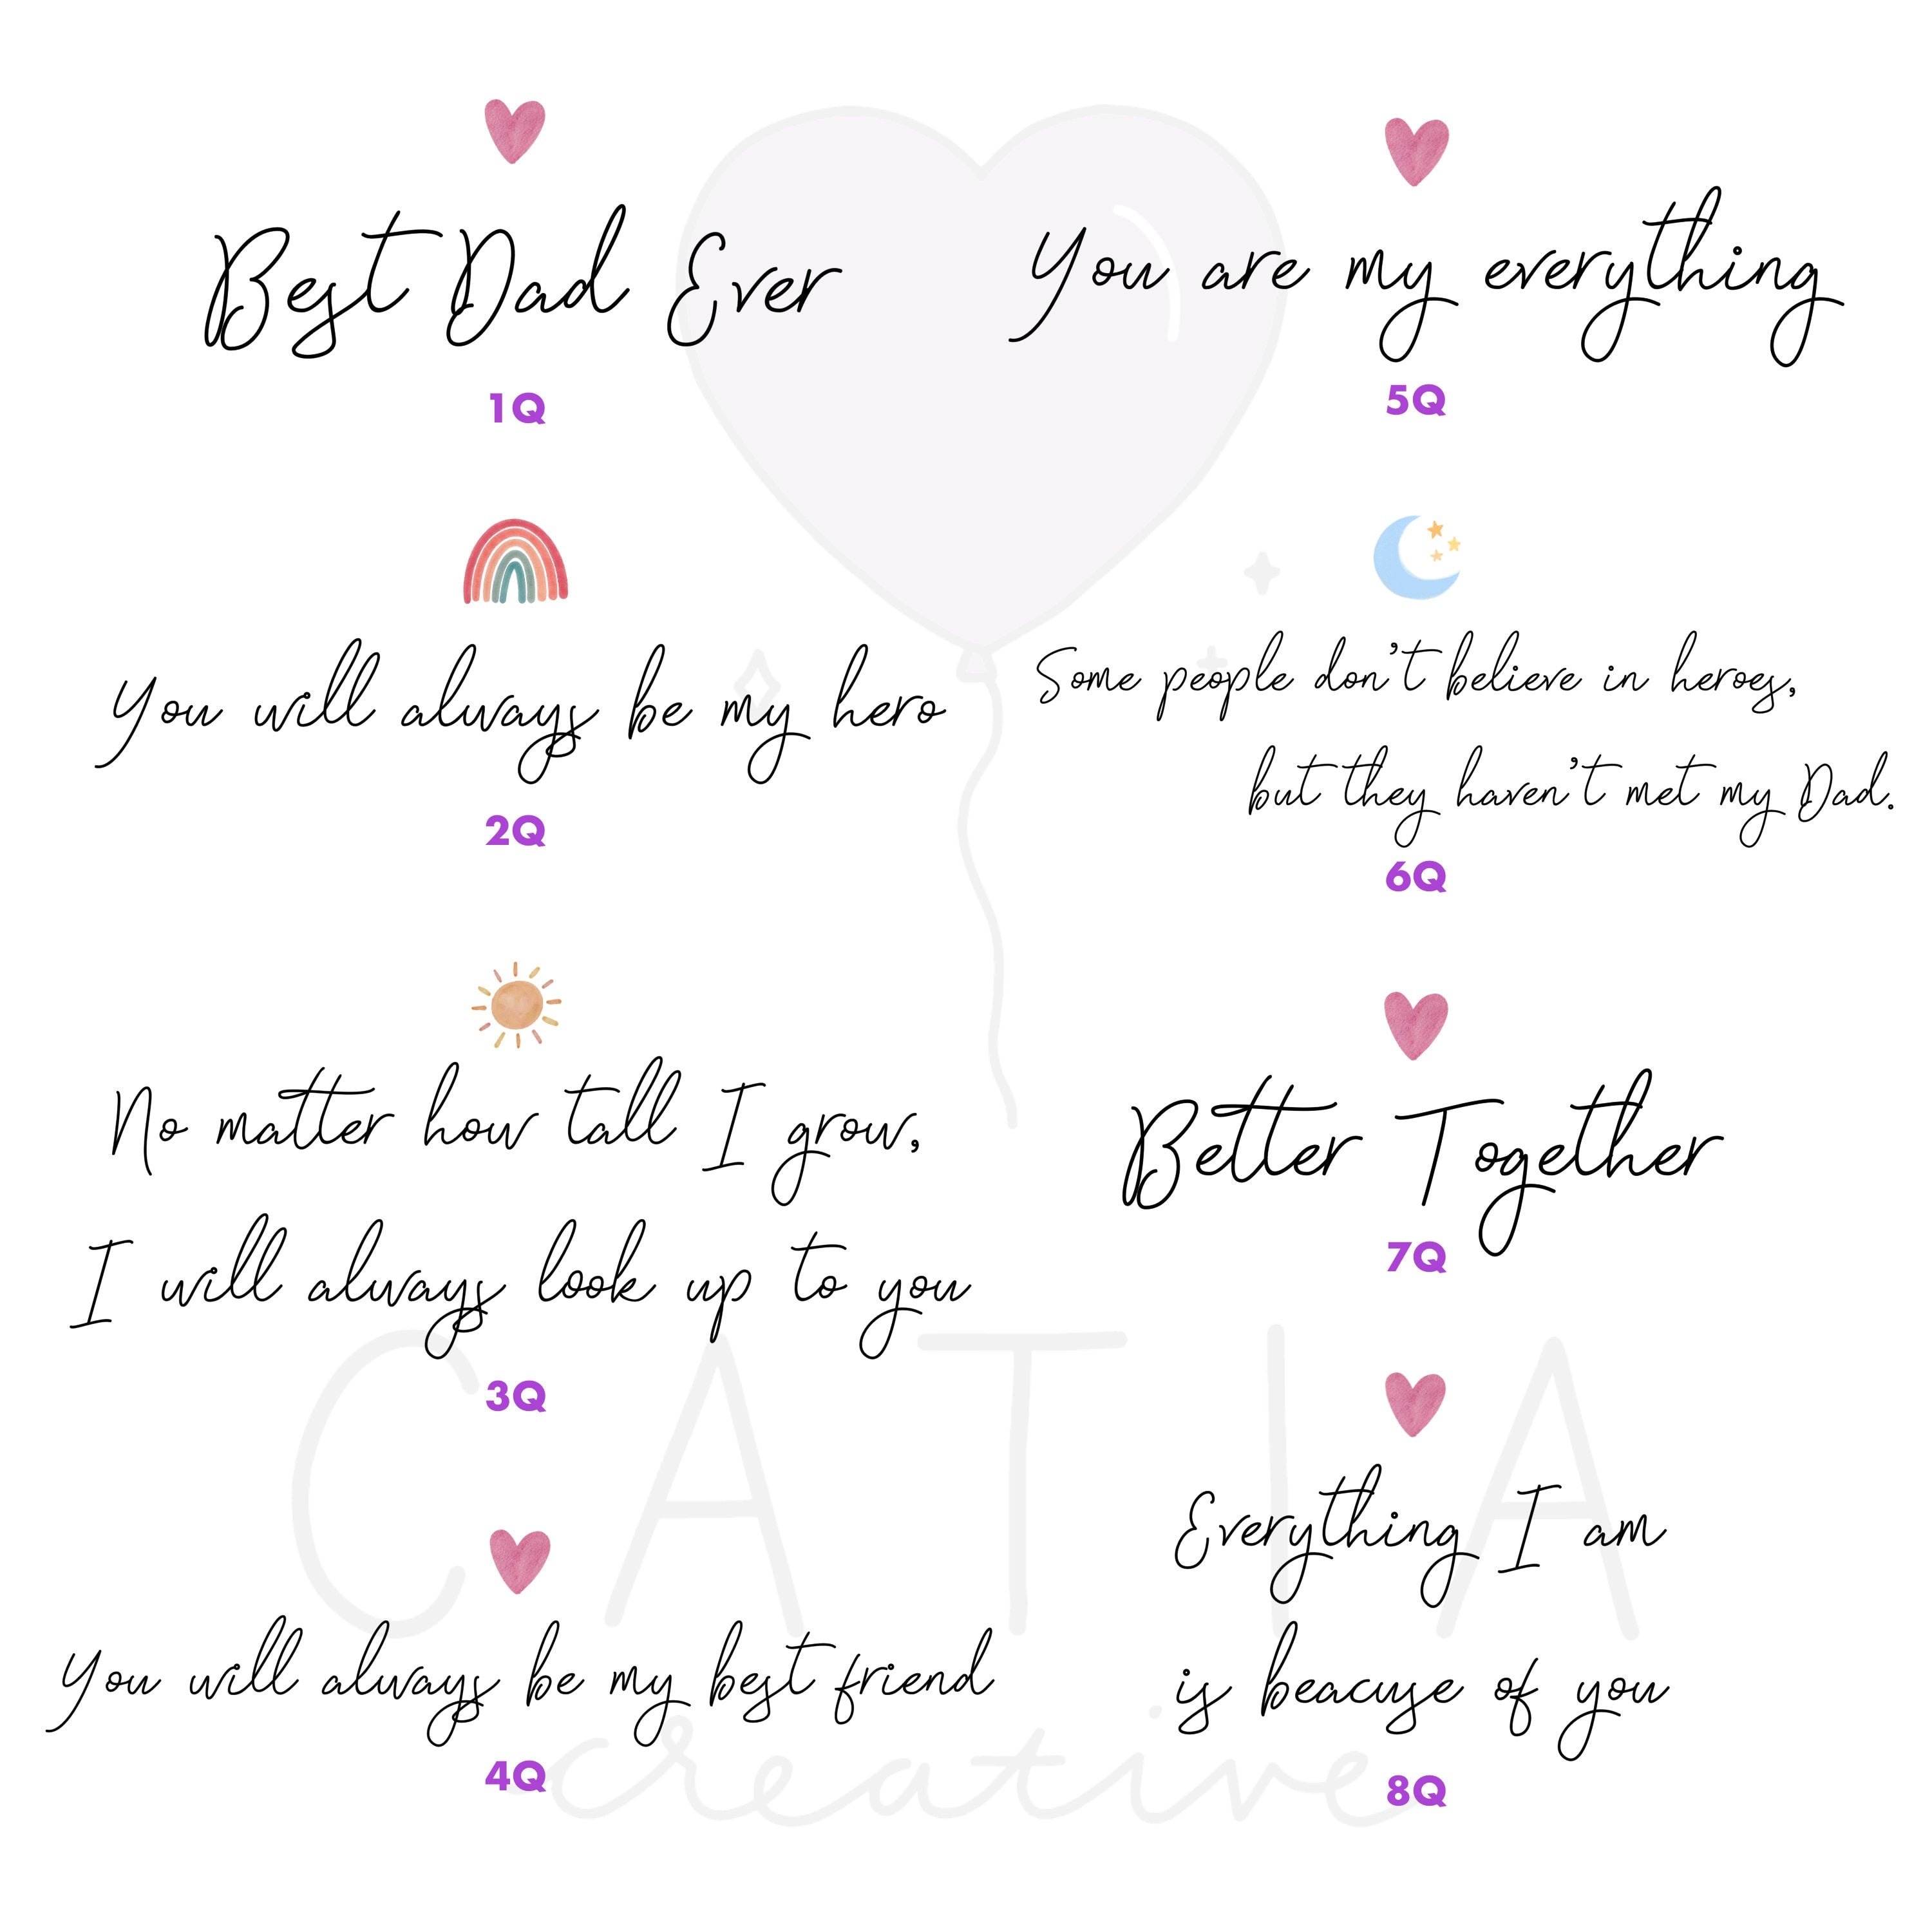 Best Dad Ever
1Q
You will always be my hero
2Q
No matter how tall I grow,
I will always look up to you
3Q
You will always be my best friend
4Q
You are my everything
5Q
Some people don't believe in heroes,
but they haven't met my Dad.
6Q
Better Together
7Q
Everything I am
is beacuse of you
8Q
CATIA
creative